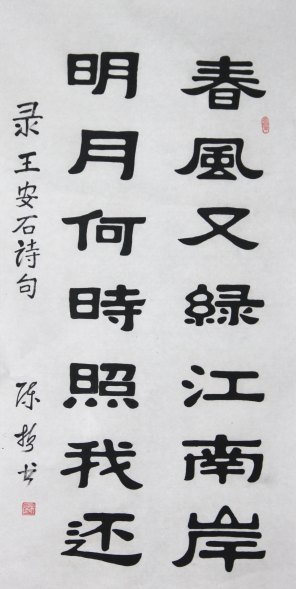 春風又緑江南岸
明月何時照我还
录王安石诗句
陈哲书